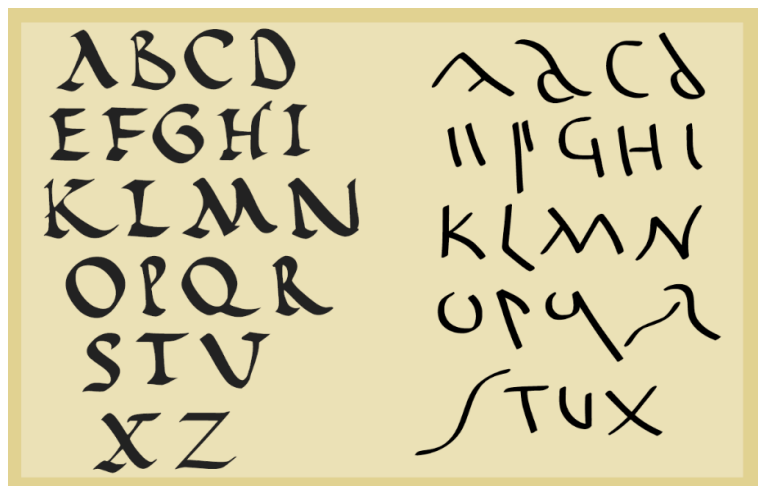 A B C D
E F G H I
K L M N
O P Q R
S T V
X Z
A B C D
E F G H I
K L M N
O P Q R
S T U X